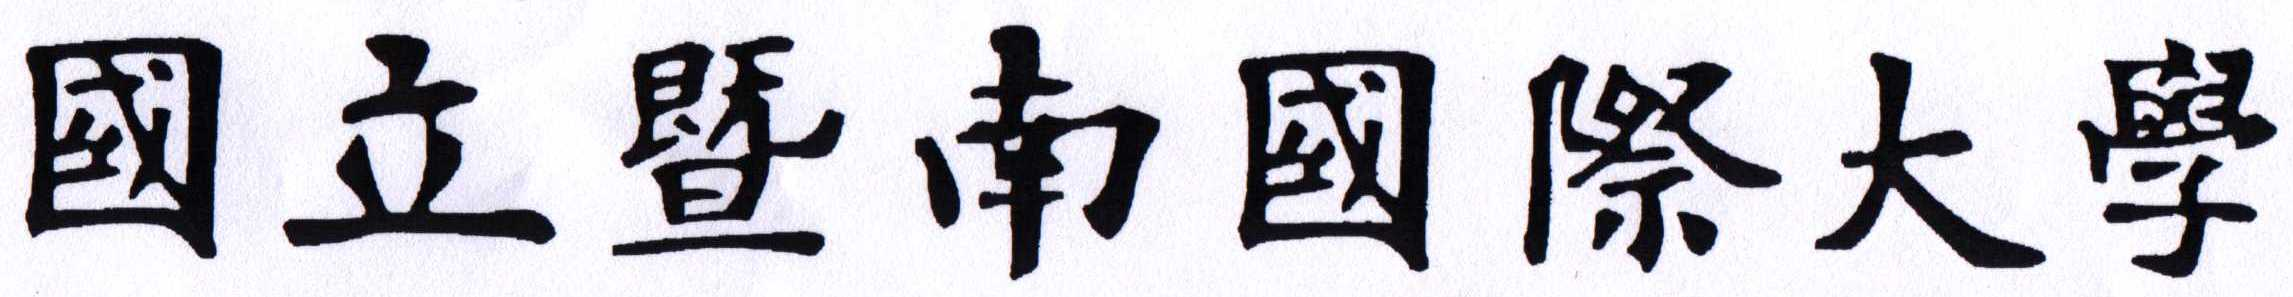 國立暨南國際大學